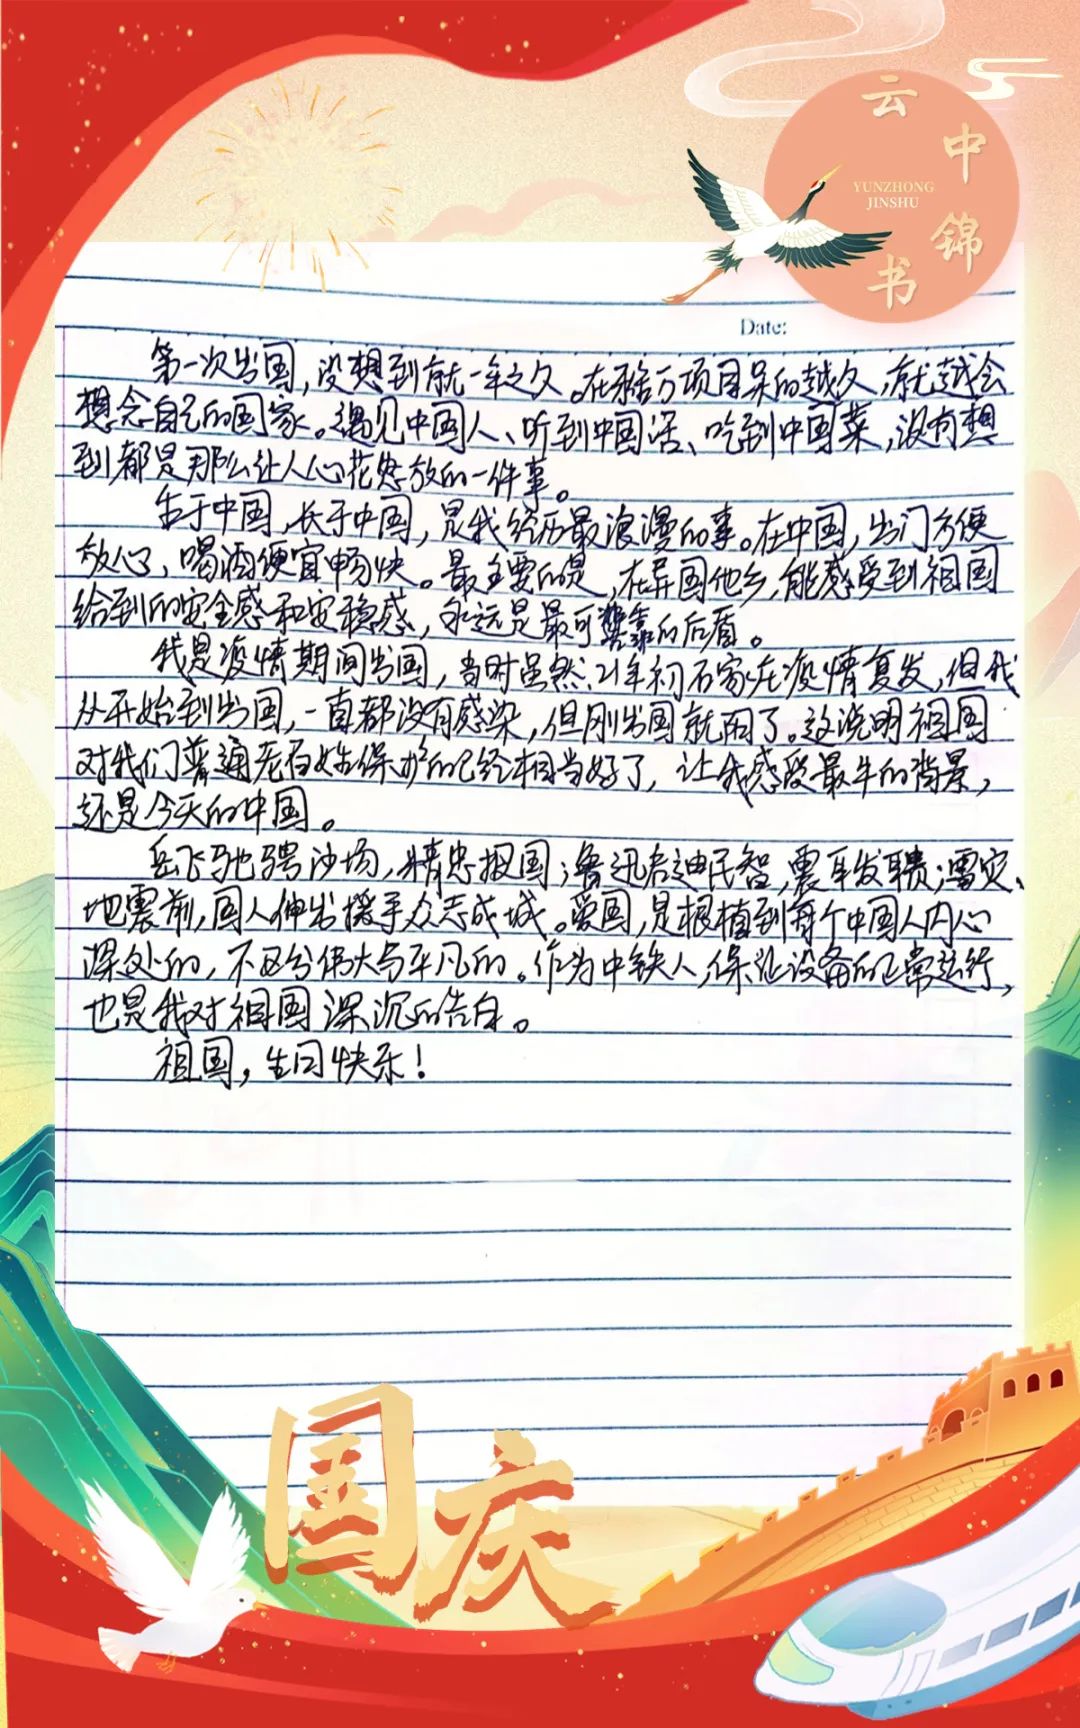 云中锦书
YUNZHONG
JINSHU
Date:
第一次出国，没想到就一年之久。在雅万项目呆的越久，就越会
想念自己的国家。遇见中国人、听到中国话、吃到中国菜，没有想
到都是那么让人心花怒放的一件事。
生于中国，长于中国，是我经历最浪漫的事。在中国，出门方便
放心，喝酒便宜畅快。最主要的是，在异国他乡，能感受到祖国
给到的安全感和安稳感，永远是最可靠的后盾。
我是疫情期间出国，当时虽然21年初石家庄疫情复发，但我
从开始到出国，一直都没有感染，但刚出国就阳了。这说明祖国
对我们普通老百姓保护的已经相当好了，让我感受最牛的背景，
还是今天的中国。
岳飞驰骋沙场，精忠报国；鲁迅启迪民智，震耳发聩；雪灾、
地震前，国人伸出援手众志成城。爱国，是根植到每个中国人内心
深处的，不区分伟大与平凡的。作为中铁人，保证设备的正常运行，
也是我对祖国深沉的告白。
祖国，生日快乐！
国庆